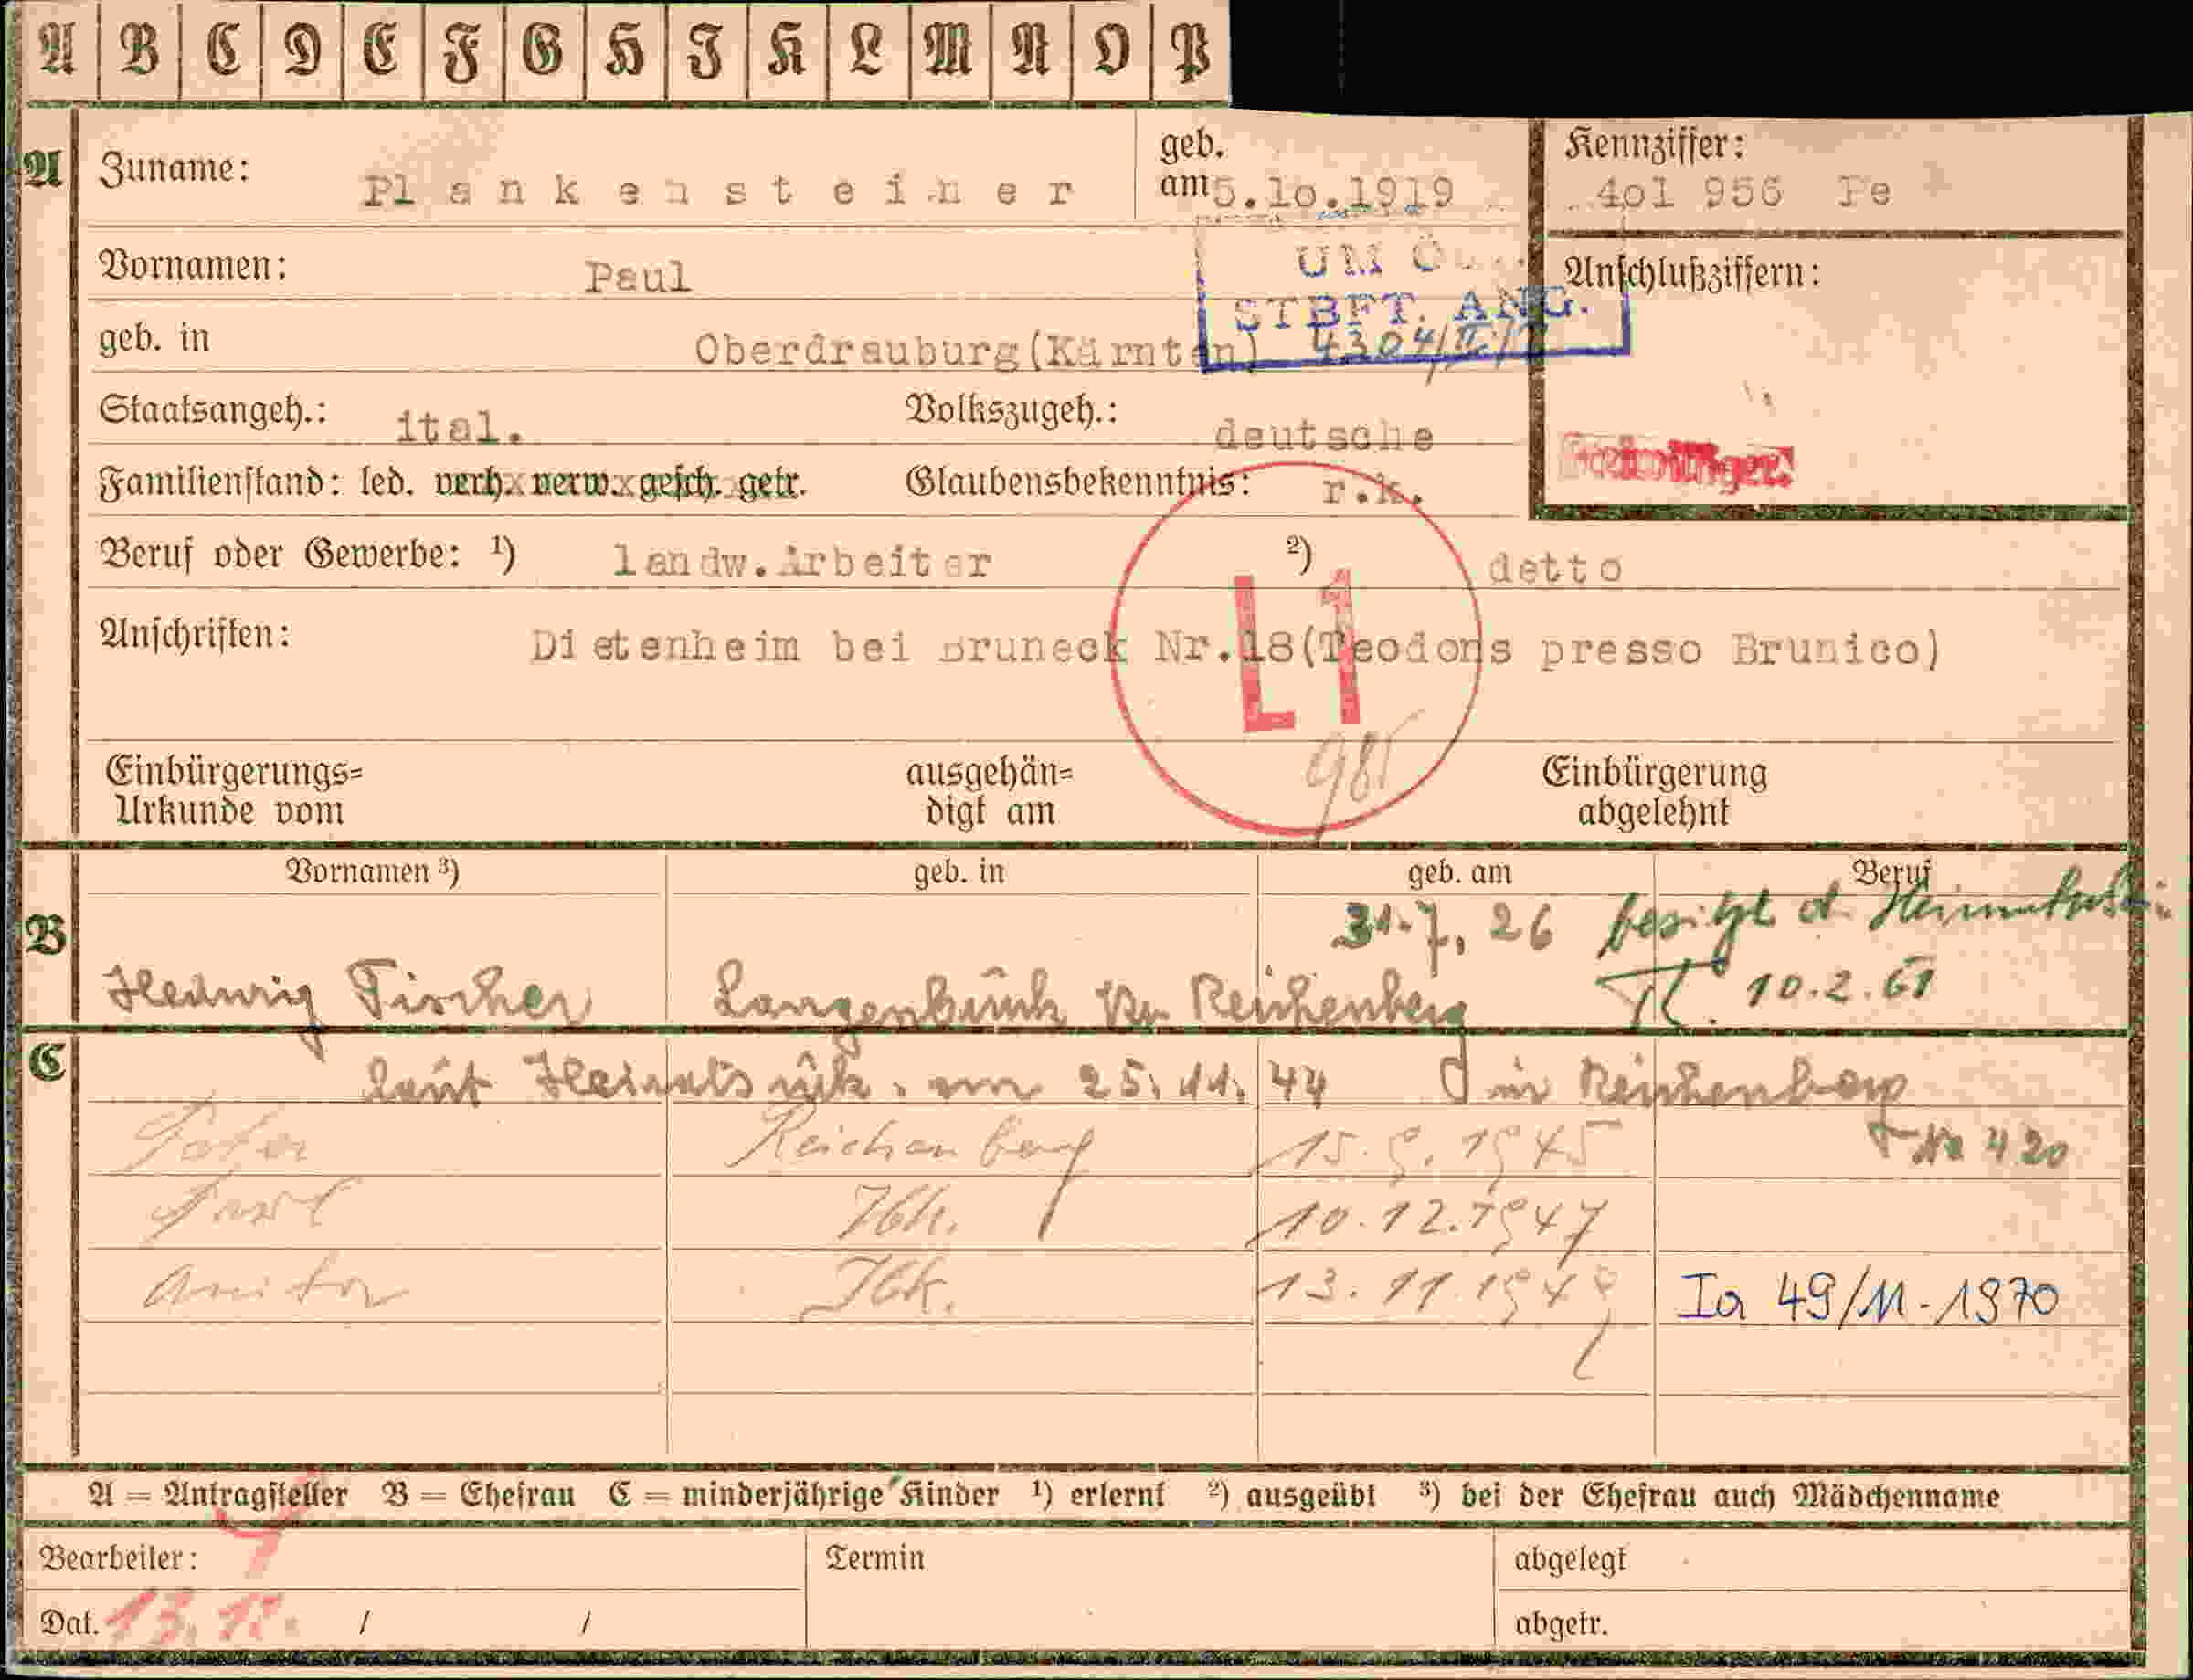 A B C D E F G H I K L M N O P
A Zuname: Plankensteiner geb. am 5.10.1919 Kennziffer: 401 956 Pe
Vornamen: Paul Anschlußziffern:
UM
STBFT. ANG.
geb. in Oberdrauburg(Kärnten) 4304/II/
Staatsangeh.: ital. Volkszugeh.: deutsche
Familienstand: led. verh. verw. gesch. getr. Glaubensbekenntnis: r.k.
Beruf oder Gewerbe: ¹) landw.Arbeiter ²) detto
L1
Anschriften: Dietenheim bei Bruneck Nr.18(Teodons presso Brunico)
Einbürgerungs= Urkunde vom ausgehän= digt am 985 Einbürgerung abgelehnt
Vornamen ³) geb. in geb. am Beruf
B 31.7.26 besitzt d.
Hedwig Fischer Reichenberg 10.2.61
C laut am 25.11.44 in Reichenberg
Peter Reichenberg 15.9.1945 No 420
Paul Ibk. 10.12.1947
Anita Ibk. 13.11.1949 Ia 49/11-1970
A = Antragsteller B = Ehefrau C = minderjährige Kinder ¹) erlernt ²) ausgeübt ³) bei der Ehefrau auch Mädchenname
Bearbeiter: Termin abgelegt
Dat. 13.12. / / abgetr.